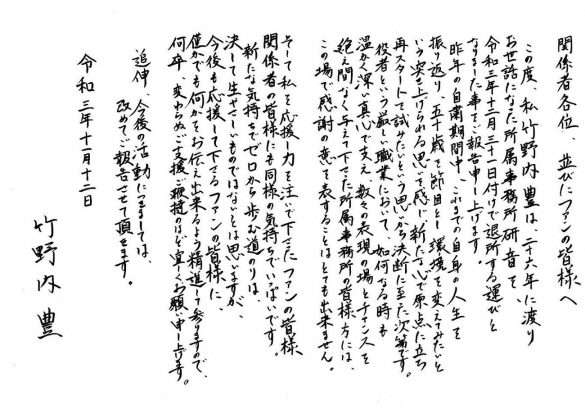 関係者各位、並びにファンの皆様へ
この度、私竹野内豊は、二十六年に渡り
お世話になった所属事務所研音を、
令和三年十二月三十一日付けで退所する運びと
なりました事をご報告申し上げます。
昨年の自粛期間中、これまでの自身の人生を
振り返り、五十歳を節目とし環境を変えてみたいと
いう突き上げられる思いを感じ、新たな心で原点に立ち
再スタートして試みたいという思いから決断に至った次第です。
役者という厳しい職業において、如何なる時も
温かく深い真心で支え、数々の表現の場とチャンスを
絶え間なく与えて下さった所属事務所の皆様方には、
この場で感謝の意を表することはとても出来ません。
そして私を応援し力を注いで下さったファンの皆様、
関係者の皆様にも同様の気持ちでいっぱいです。
新たな気持ちでゼロから歩む道のりは、
決して生やさしいものではないとは思いますが、
今後も応援して下さるファンの皆様に、
僅かでも何かをお伝え出来るよう精進して参りますので、
何卒、変わらぬご支援ご理解のほど宜しくお願い申し上げます。
追伸 今後の活動につきましては、
改めてご報告させて頂きます。
令和三年十一月十二日
竹野内豊